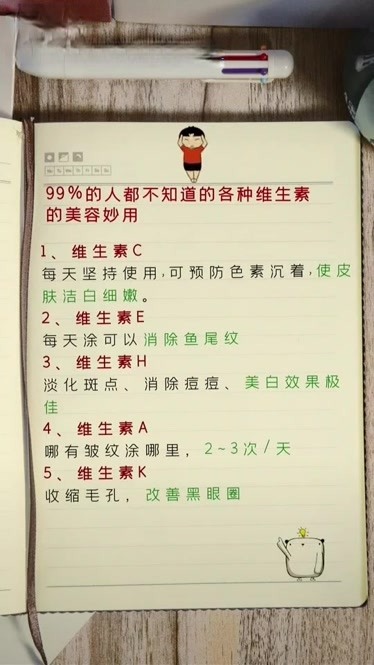 99%的人都不知道的各种维生素
的美容妙用
1、维生素C
每天坚持使用,可预防色素沉着,使皮
肤洁白细嫩。
2、维生素E
每天涂可以消除鱼尾纹
3、维生素H
淡化斑点、消除痘痘、美白效果极
佳
4、维生素A
哪有皱纹涂哪里，2~3次/天
5、维生素K
收缩毛孔，改善黑眼圈